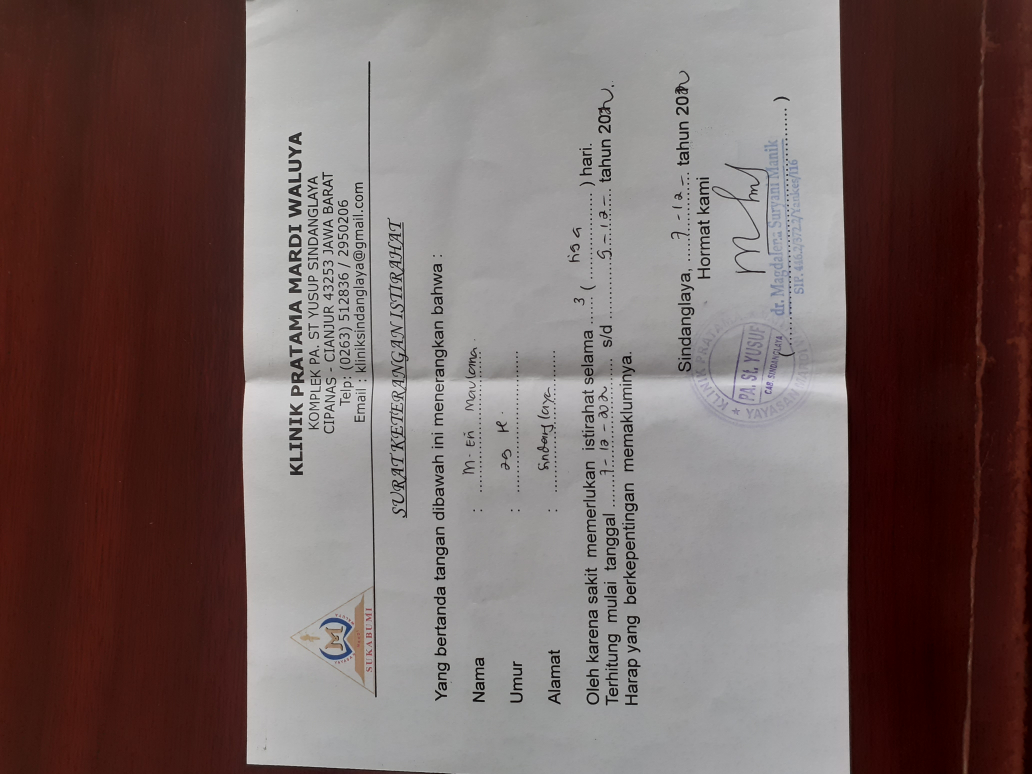 KLINIK PRATAMA MARDI WALUYA
KOMPLEK PA. ST YUSUP SINDANGLAYA
CIPANAS - CIANJUR 43253 JAWA BARAT
Telp: (0263) 512836 / 2950206
Email : kliniksindanglaya@gmail.com
SUKABUMI
SURAT KETERANGAN ISTIRAHAT
Yang bertanda tangan dibawah ini menerangkan bahwa :
Nama : M. Eri Maulana
Umur : 29
Alamat : Sindanglaya
Oleh karena sakit memerlukan istirahat selama 3 ( tiga ) hari.
Terhitung mulai tanggal 7-12-2022 s/d 9-12- tahun 2022.
Harap yang berkepentingan memakluminya.
Sindanglaya, 7-12- tahun 2022
Hormat kami
KLINIK PRATAMA
PA. St. YUSUF
CAB. SINDANGLAYA
YAYASAN MARDI
dr. Magdalena Suryani Manik
(                    )